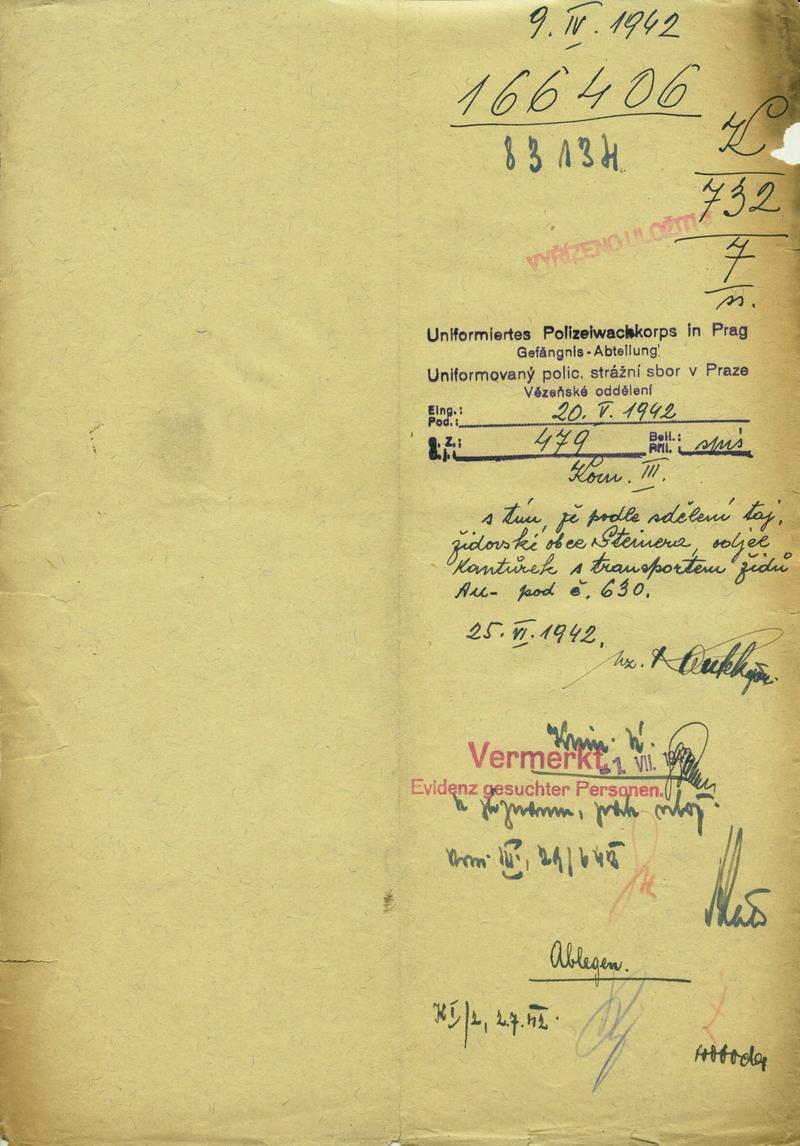 9. IV. 1942
166406
83134
K
732
7
VYŘÍZENO ULOŽITI
Uniformiertes Polizeiwachkorps in Prag
Gefängnis-Abteilung
Uniformovaný polic. strážní sbor v Praze
Vězeňské oddělení
Eing.:
Pod.: 20. V. 1942
g. Z.:
č. j.: 479 Beil.:
Příl.: spis
Kom. III.
s tím, že podle sdělení taj.
židovské obce Steinera, odjel
Kantůrek s transportem židů
AU- pod č. 630.
25. VI. 1942.
Krim. ú.
Vermerkt 1. VII. 1942
Evidenz gesuchter Personen.
k záznamu, pak
Kom. III, 29/6 42
Ablegen.
K I/2, 2.7.42.